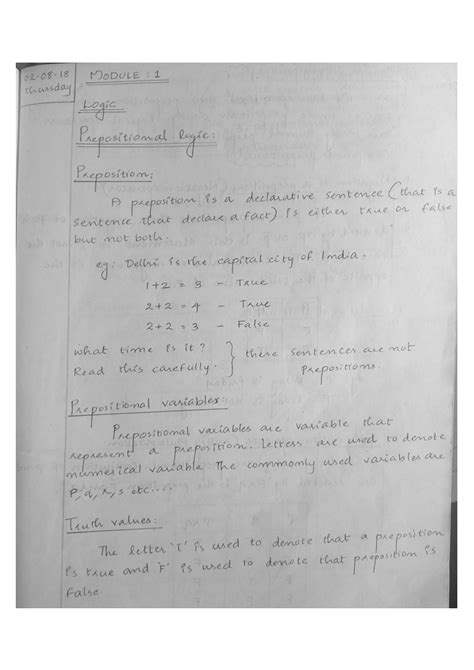 02-08-18
Thursday
MODULE : 1
Logic
Prepositional logic:
Preposition:
A preposition is a declarative sentence (that is a
sentence that declare a fact) is either true or false
but not both.
eg: Delhi is the capital city of India.
1+2 = 3 - True
2+2 = 4 - True
2+2 = 3 - False
what time is it ?
Read this carefully. } these sentences are not
prepositions.
Prepositional variables
Prepositional variables are variable that
represent a preposition. letters are used to denote
numerical variable. The commomly used variables are
P, q, r, s etc....
Truth values:
The letter 'T' is used to denote that a preposition
is true and 'F' is used to denote that preposition is
False.